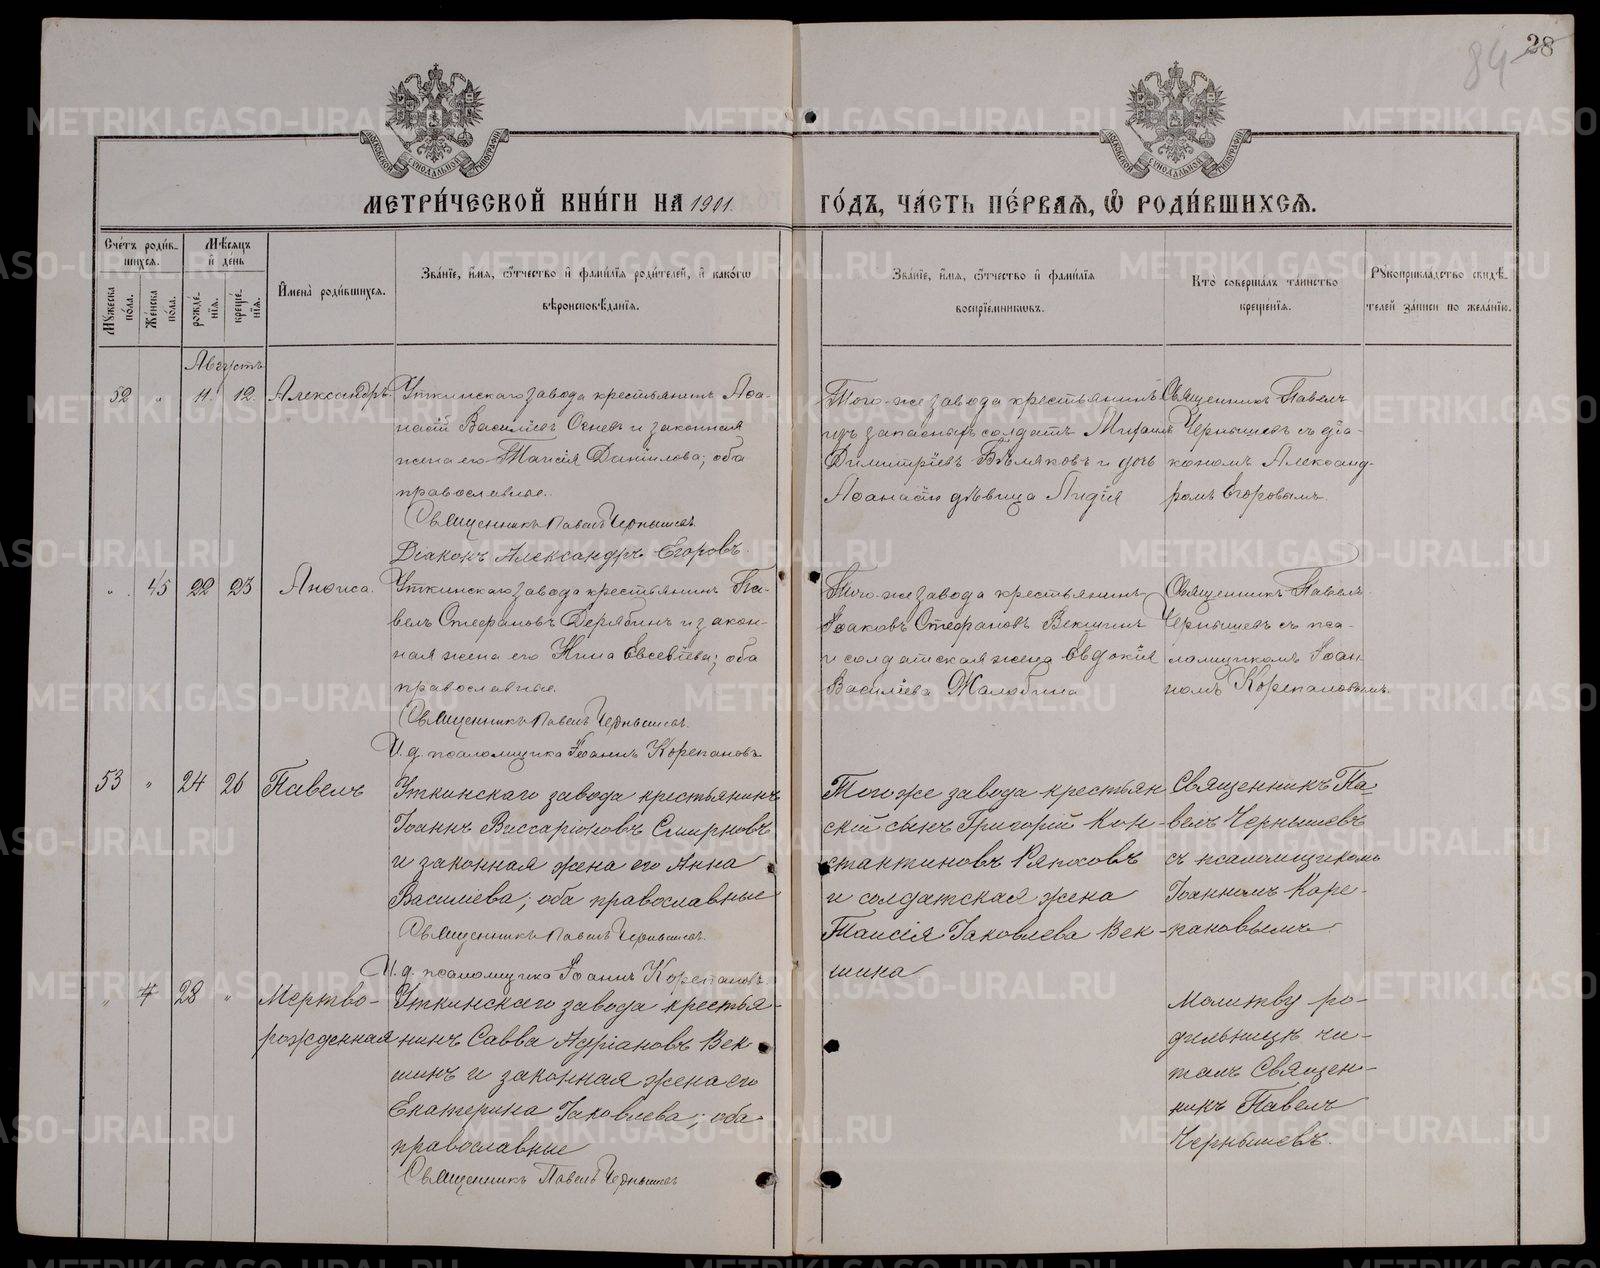 28
84
МЕТРИ́ЧЕСКОЙ КНИ́ГИ НА 1901.
ГО́ДЪ, ЧА́СТЬ ПЕ́РВАѦ, Ѡ РОДИ́ВШИХСѦ.
Сче́тъ роди́вшихсѧ.
Мѣ́сѧцъ и де́нь
Му́жеска по́ла.
Же́нска по́ла.
рожде́нїѧ.
креще́нїѧ.
Имена̀ роди́вшихсѧ.
Зва́нїе, и́мѧ, ѻ́тчество и фами́лїѧ роди́телей, и како́гѡ
вѣроисповѣ́данїѧ.
Зва́нїе, и́мѧ, ѻ́тчество и фами́лїѧ
воспрїе́мникѡвъ.
Кто̀ соверша́лъ та́инство
креще́нїѧ.
Рꙋкоприкла́дство свидѣ́телей за́писи по жела́нїю.
Августъ
52 " 11. 12. Александръ.
Уткинскаго завода крестьянинъ Аѳа-
насій Василіевъ Огневъ и законная
жена его Таисія Даніилова; оба
православные.
Священникъ Павелъ Чернышевъ.
Діаконъ Александръ Егоровъ.
Того-же завода крестьянинъ
изъ запасныхъ солдатъ Михаилъ
Димитріевъ Бѣляковъ и дочь
Аѳанасія дѣвица Лидія
Священникъ Павелъ
Чернышевъ съ діа-
кономъ Александ-
ромъ Егоровымъ.
" 45 22 23 Анѳиса.
Уткинскаго завода крестьянинъ Па-
велъ Стефановъ Дерябинъ и закон-
ная жена его Нина Евсевіева; оба
православные.
Священникъ Павелъ Чернышевъ.
И. д. псаломщика Іоаннъ Корепановъ.
Того-же завода крестьянинъ
Іаковъ Стефановъ Векшинъ
и солдатская жена Евдокія
Василіева Жалобина
Священникъ Павелъ
Чернышевъ съ пса-
ломщикомъ Іоан-
номъ Корепановымъ.
53 " 24 26 Павелъ
Уткинскаго завода крестьянинъ
Іоаннъ Виссаріоновъ Смирновъ
и законная жена его Анна
Василіева; оба православные
Священникъ Павелъ Чернышевъ.
И. д. псаломщика Іоаннъ Корепановъ
Того же завода крестьян
скій сынъ Григорій Кон-
стантиновъ Ряпосовъ
и солдатская жена
Таисія Іаковлева Век-
шина
Священникъ Па-
велъ Чернышевъ
съ псаломщикомъ
Іоанномъ Коре-
пановымъ
" 28 " Мертво-
рожденная
Уткинскаго завода крестья-
нинъ Савва Адріановъ Век-
шинъ и законная жена его
Екатерина Іаковлева; оба
православные
Священникъ Павелъ Чернышевъ
Молитву ро-
дильницѣ чи-
талъ Священ-
никъ Павелъ
Чернышевъ.
METRIKI.GASO-URAL.RU